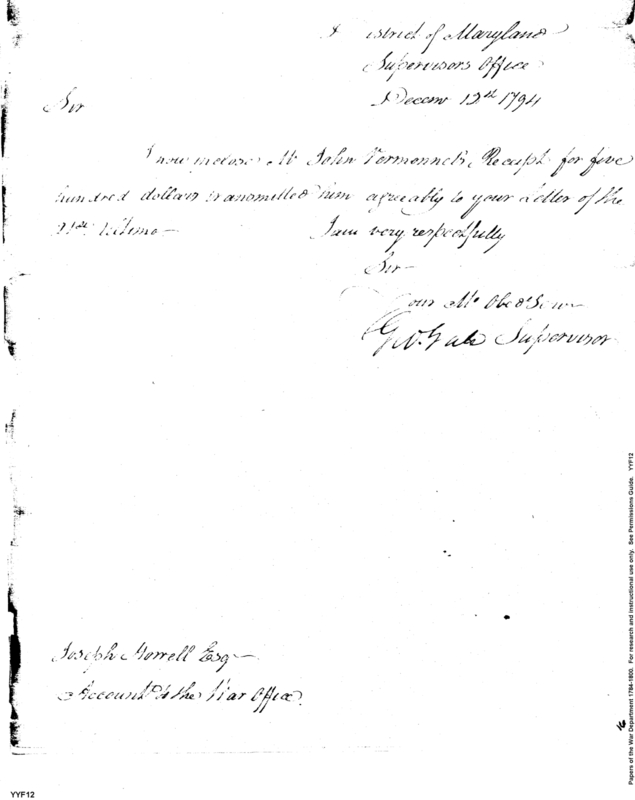 District of Maryland
Supervisors Office
Decemr 12th 1794
Sir
I now inclose Mr John Vermonnet's Receipt for five
hundred dollars transmitted him agreably to your Letter of the
Ultimo—
I am very respectfully
Sir—
Your Mo Obedt Serv
Supervisor
Joseph Howell Esqr
Accountt to the War Office.
Papers of the War Department 1784-1800. For research and instructional use only. See Permissions Guide. YYF12
YYF12